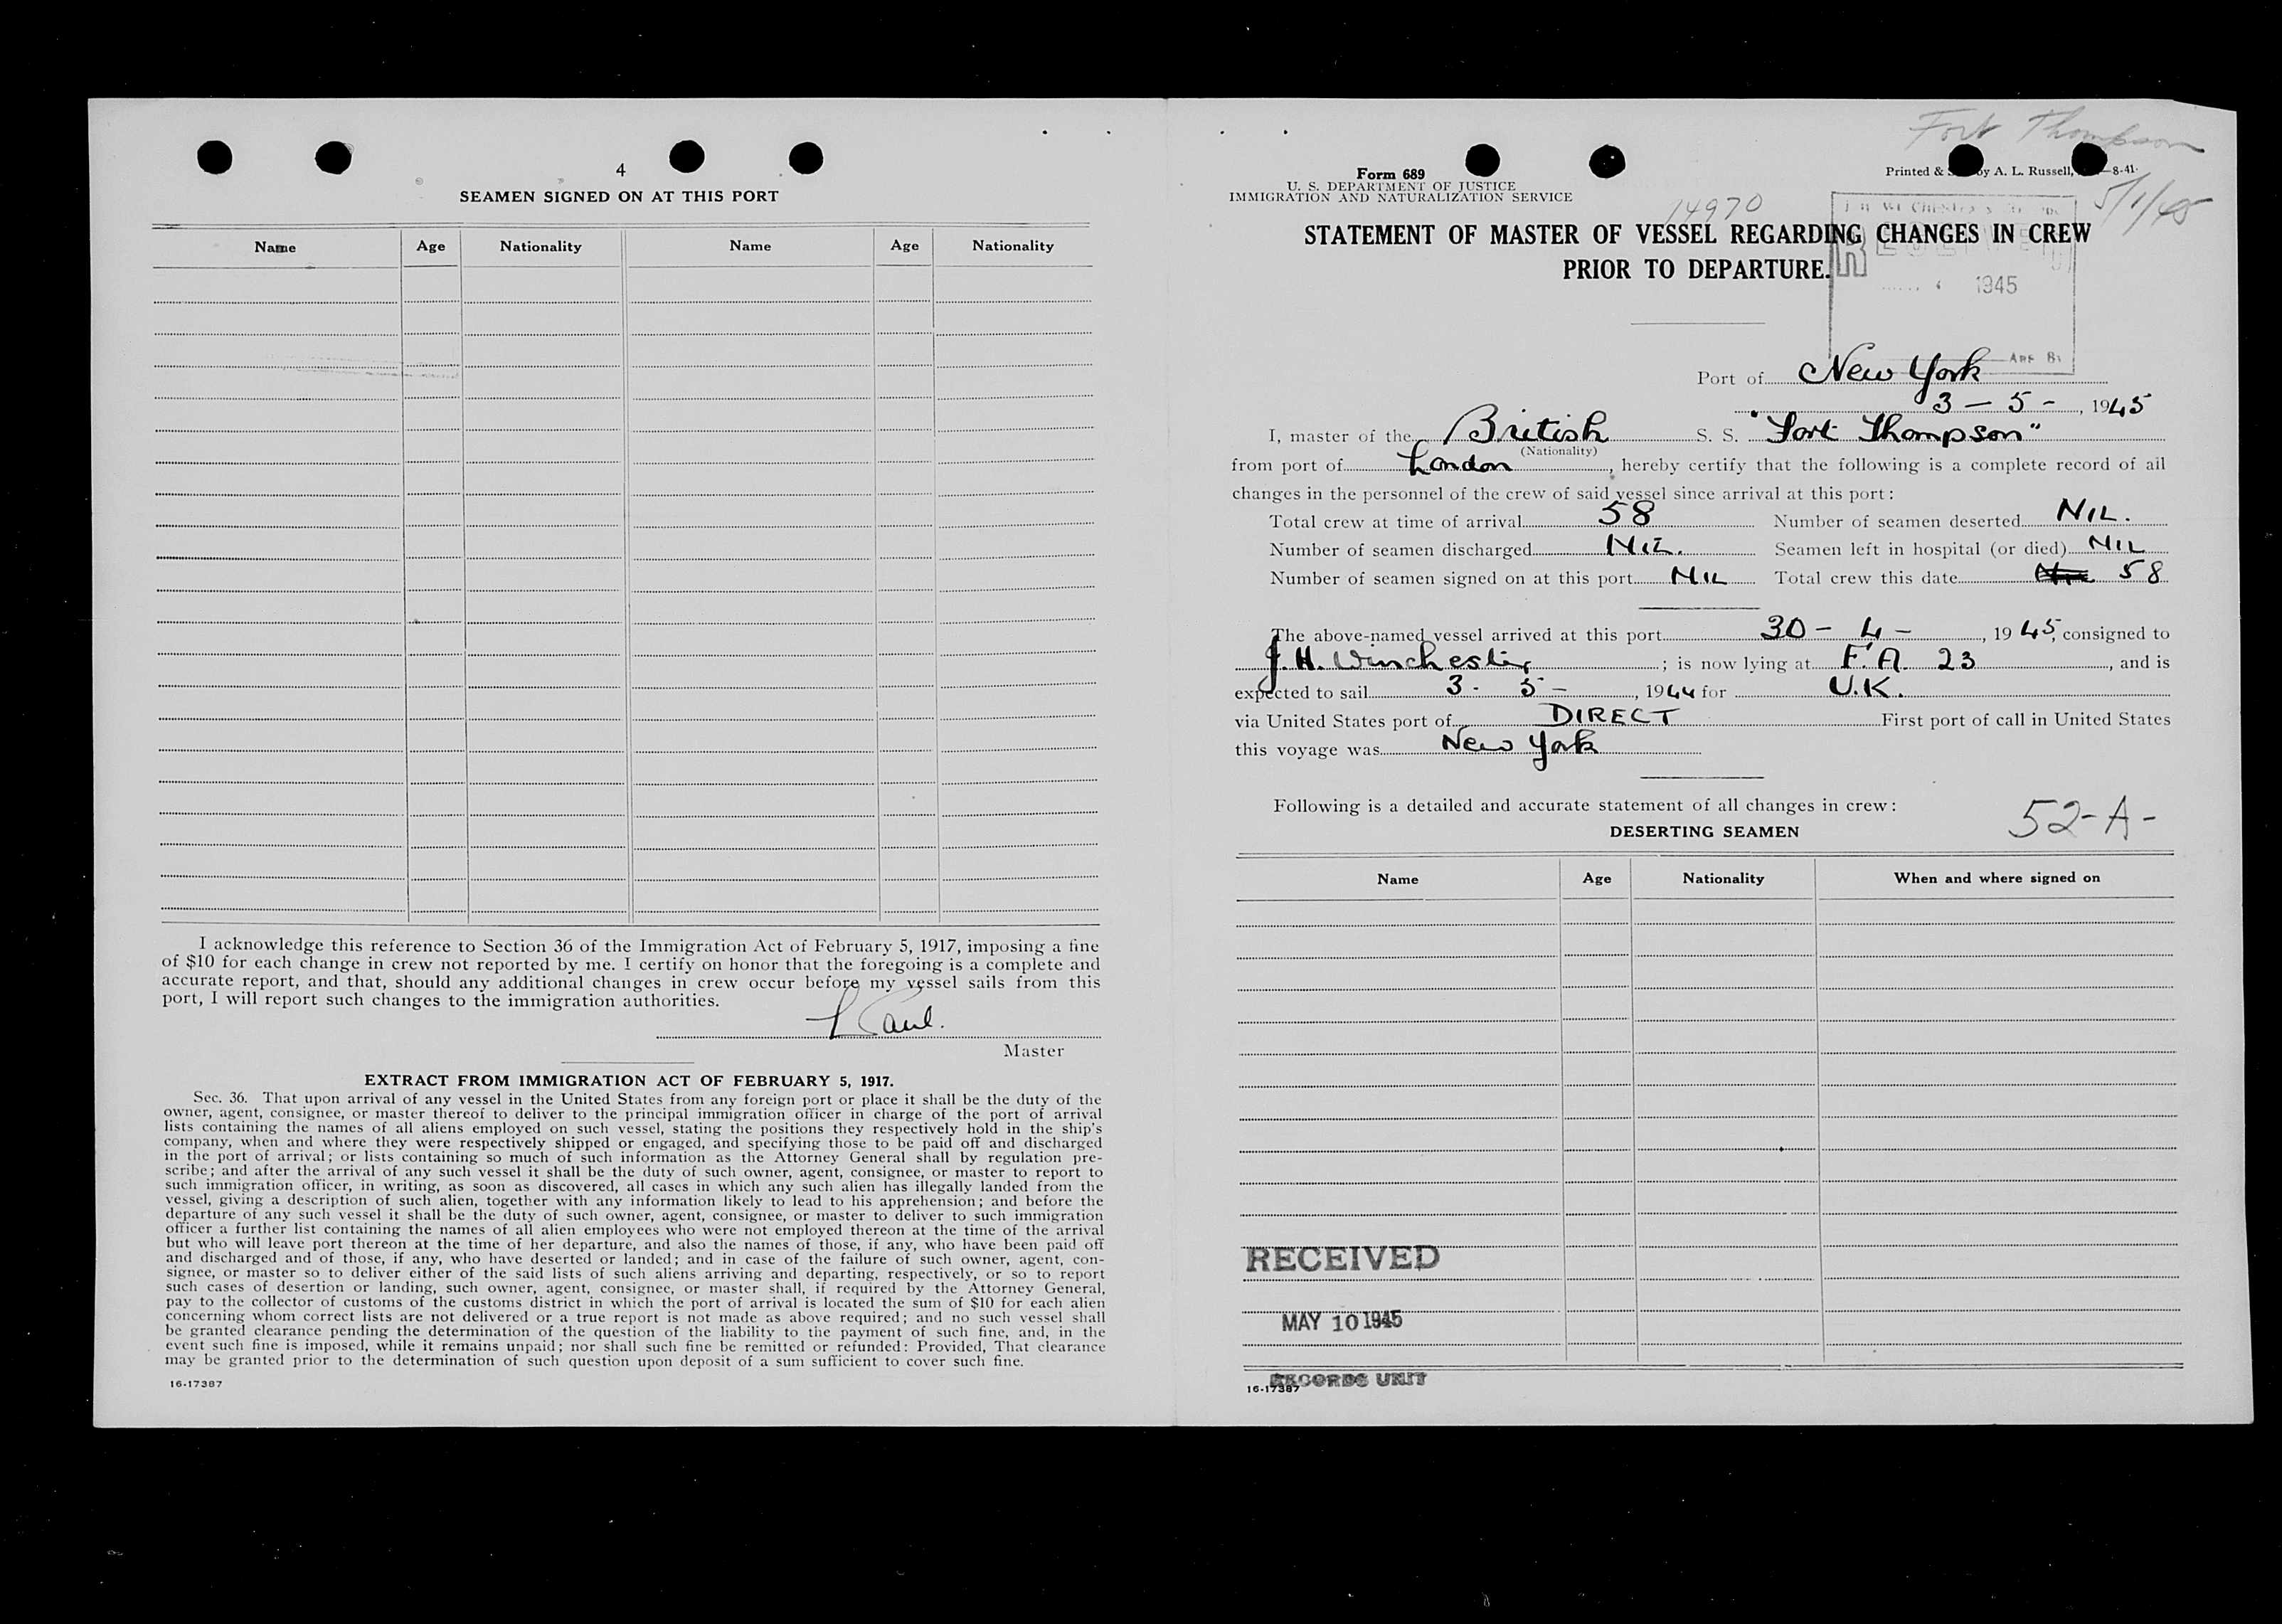 4
SEAMEN SIGNED ON AT THIS PORT
Name Age Nationality Name Age Nationality
I acknowledge this reference to Section 36 of the Immigration Act of February 5, 1917, imposing a fine
of $10 for each change in crew not reported by me. I certify on honor that the foregoing is a complete and
accurate report, and that, should any additional changes in crew occur before my vessel sails from this
port, I will report such changes to the immigration authorities.
Master
EXTRACT FROM IMMIGRATION ACT OF FEBRUARY 5, 1917.
Sec. 36. That upon arrival of any vessel in the United States from any foreign port or place it shall be the duty of the
owner, agent, consignee, or master thereof to deliver to the principal immigration officer in charge of the port of arrival
lists containing the names of all aliens employed on such vessel, stating the positions they respectively hold in the ship's
company, when and where they were respectively shipped or engaged, and specifying those to be paid off and discharged
in the port of arrival; or lists containing so much of such information as the Attorney General shall by regulation pre-
scribe; and after the arrival of any such vessel it shall be the duty of such owner, agent, consignee, or master to report to
such immigration officer, in writing, as soon as discovered, all cases in which any such alien has illegally landed from the
vessel, giving a description of such alien, together with any information likely to lead to his apprehension; and before the
departure of any such vessel it shall be the duty of such owner, agent, consignee, or master to deliver to such immigration
officer a further list containing the names of all alien employees who were not employed thereon at the time of the arrival
but who will leave port thereon at the time of her departure, and also the names of those, if any, who have been paid off
and discharged and of those, if any, who have deserted or landed; and in case of the failure of such owner, agent, con-
signee, or master so to deliver either of the said lists of such aliens arriving and departing, respectively, or so to report
such cases of desertion or landing, such owner, agent, consignee, or master shall, if required by the Attorney General,
pay to the collector of customs of the customs district in which the port of arrival is located the sum of $10 for each alien
concerning whom correct lists are not delivered or a true report is not made as above required; and no such vessel shall
be granted clearance pending the determination of the question of the liability to the payment of such fine, and, in the
event such fine is imposed, while it remains unpaid; nor shall such fine be remitted or refunded: Provided, That clearance
may be granted prior to the determination of such question upon deposit of a sum sufficient to cover such fine.
16-17387
Fort Thompson
5/1/45
Form 689
U. S. DEPARTMENT OF JUSTICE
IMMIGRATION AND NATURALIZATION SERVICE
Printed & by A. L. Russell, 8-41
14970
STATEMENT OF MASTER OF VESSEL REGARDING CHANGES IN CREW
PRIOR TO DEPARTURE.
1945
Port of New York
3 - 5 - , 1945
I, master of the British S. S. "Fort Thompson"
(Nationality)
from port of London, hereby certify that the following is a complete record of all
changes in the personnel of the crew of said vessel since arrival at this port:
Total crew at time of arrival 58 Number of seamen deserted NIL.
Number of seamen discharged NIL. Seamen left in hospital (or died) NIL
Number of seamen signed on at this port NIL Total crew this date 58
The above-named vessel arrived at this port 30 - 4 - , 1945, consigned to
J. H. Winchester ; is now lying at F. A. 23 , and is
expected to sail 3. 5 - , 1944 for U.K.
via United States port of DIRECT First port of call in United States
this voyage was New York
Following is a detailed and accurate statement of all changes in crew:
52-A-
DESERTING SEAMEN
Name Age Nationality When and where signed on
RECEIVED
MAY 10 1945
RECORDS UNIT
16-17387